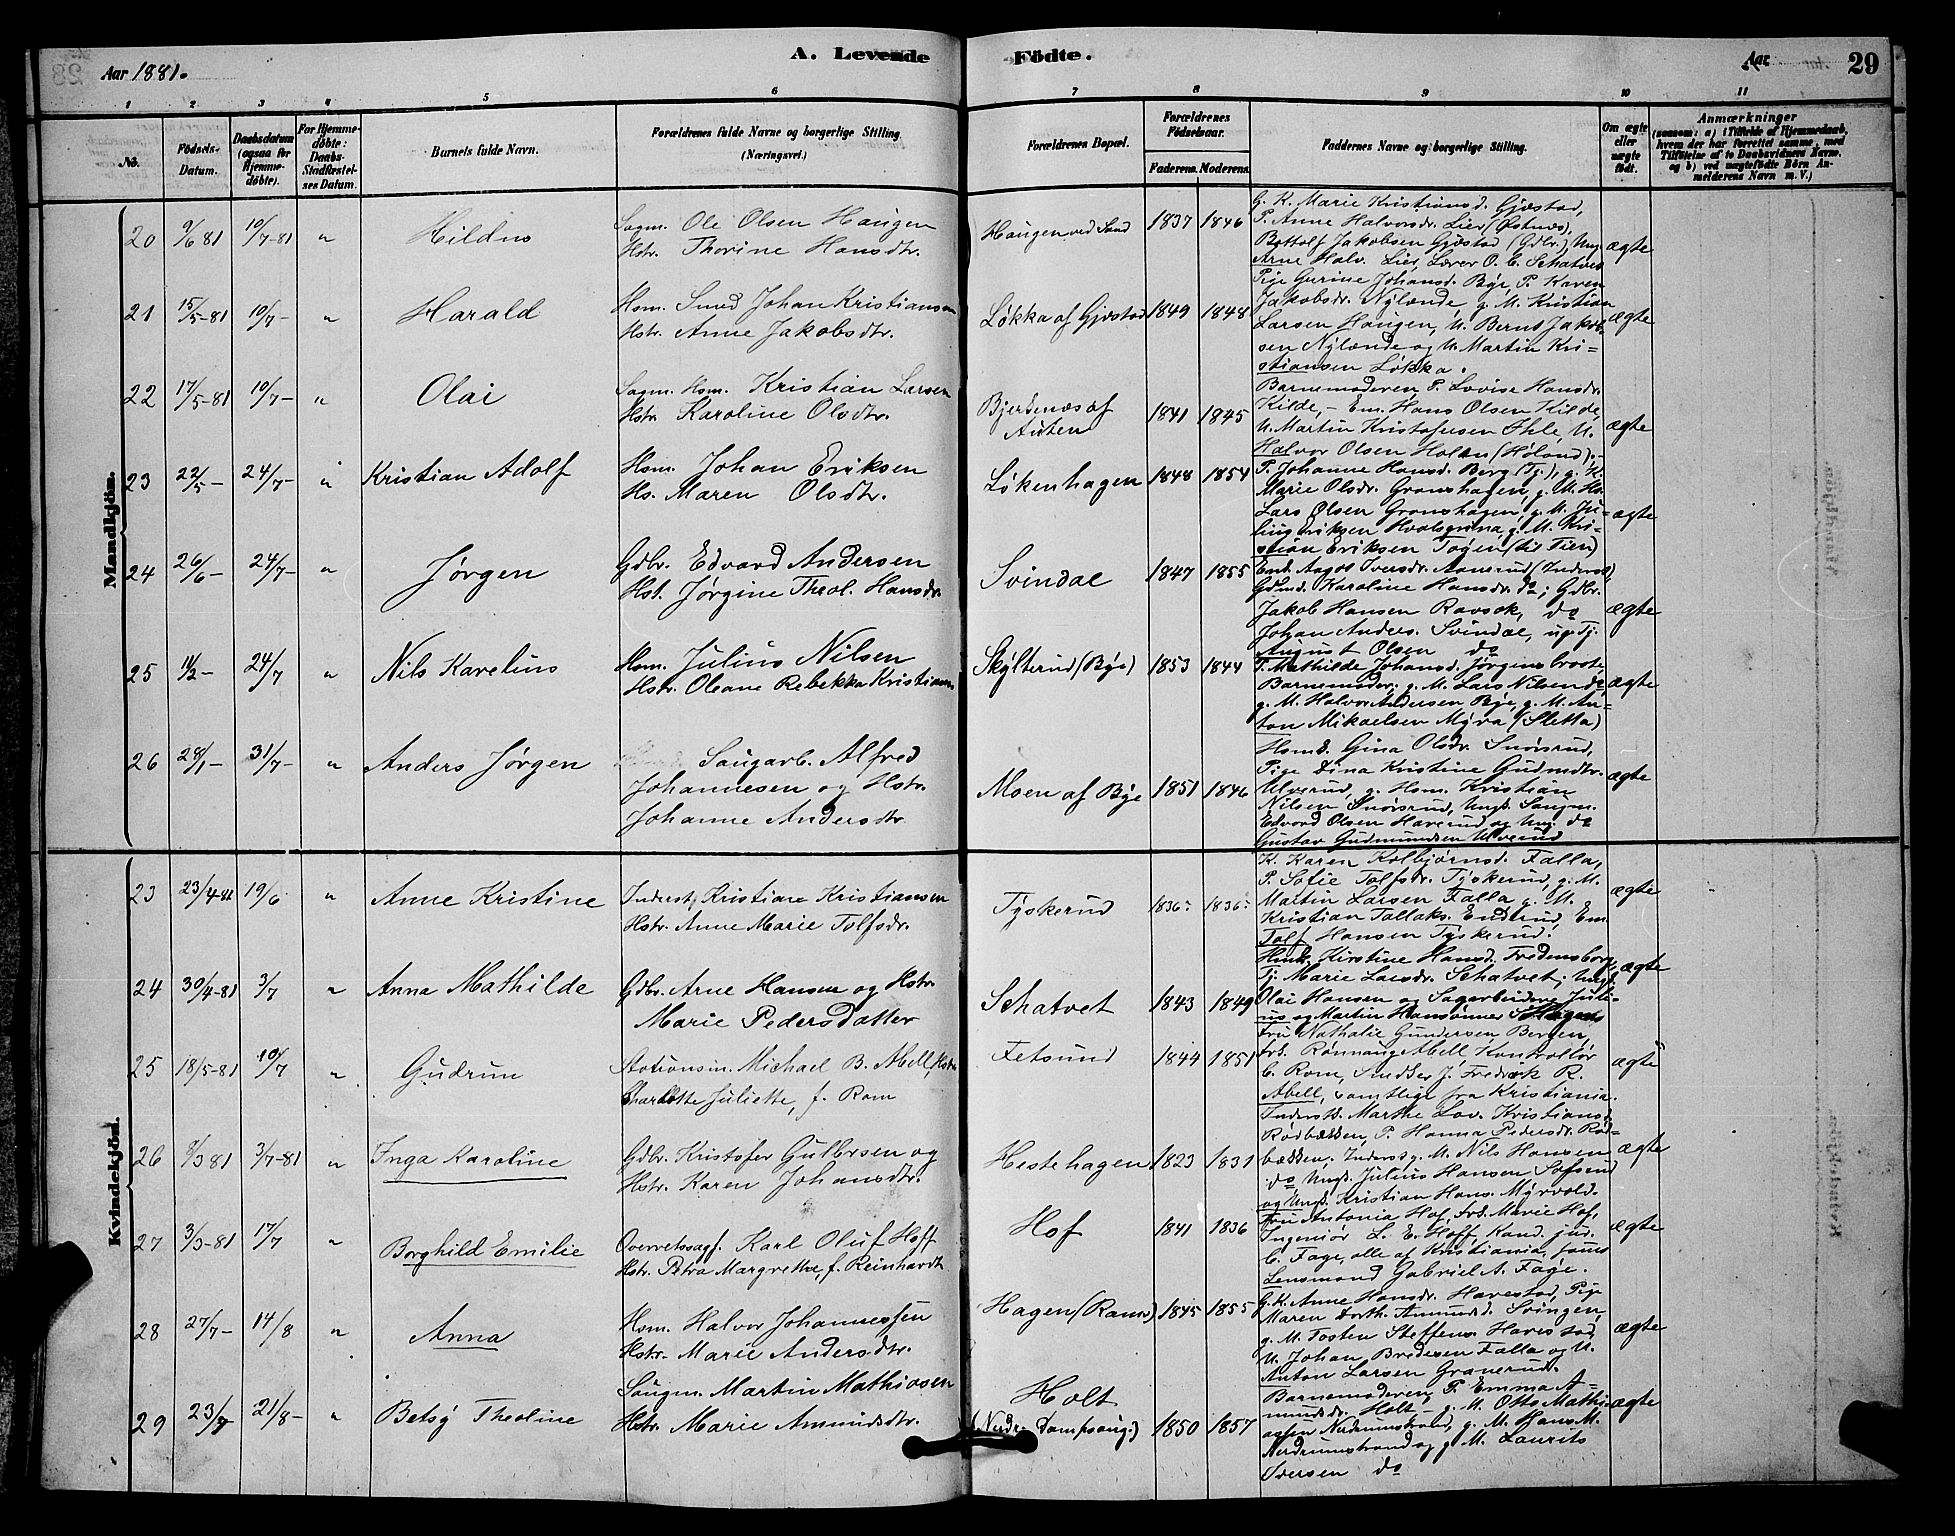 Aar 1881.
A. Levende
Födte.
Aar
29
1 2 3 4 5 6 7 8 9 10 11
No.
Födsels-Datum.
Daabsdatum (ogsaa for Hjemme-döbte).
For Hjemme-döbte: Daabs-Stadfæstel-ses Datum.
Barnets fulde Navn.
Forældrenes fulde Navne og borgerlige Stilling. (Næringsvei.)
Forældrenes Bopæl.
Forældrenes Födselsaar.
Faderens. Moderens.
Faddernes Navne og borgerlige Stilling.
Om ægte eller uægte født.
Anmærkninger
(saasom: a) i Tilfælde af Hjemmedaab, hvem der har forrettet samme, med Tilföielse af to Daabsvidners Navne, og b) ved uægtefödte Börn An-melderens Navn m. V.)
Mandkjön.
20 9/6 81 10/7-81 " Hildus
Sagm. Ole Olsen Haugen
Hstr. Thorine Hansdtr.
Haugen ved Sand 1837 1846
G. K. Marie Kristiansd. Gjæstad,
P. Anne Halvorsdr. Lier (Østnes),
Bottolf Jakobsen Gjæstad (Gdbr.), Ung.
Arne Halv. Lier, Lærer O. E. Schatvet
ægte
21 15/5-81 10/7- " Harald
Hsm. Smed Johan Kristiansen
Hstr. Anne Jakobsdtr.
Løkka af Gjæstad 1849 1848
Pige Gurine Johansd. Bye, P. Karen
Jakobsdr. Nylænde, g. M. Kristian
Larsen Haugen, U. Bernt Jakob-
sen Nylænde og U. Martin Kri-
stiansen Løkka.
ægte
22 17/5-81 10/7- " Olai
Sagm. Hsm. Kristian Larsen
Hstr. Karoline Olsdtr.
Bjerkenæs af
Auten
1841 1845
Barnemoderen, P. Lovise Hansdr.
Kilde, - Em. Hans Olsen Kilde,
U. Martin Kristofersen Ihle, U.
Halvor Olsen Holen (Høland).-
ægte
23 22/5- 24/7- " Kristian Adolf
Hsm. Johan Eriksen
Hs. Maren Olsdtr.
Løkenhagen 1848 1854
P. Johanne Hansd. Berg (Tj.), g. K.
Marie Olsdr. Gronshagen, g. M. Hs.
Lars Olsen Gronshagen, g. M. Ju-
lius Eriksen Hvalsgrina, g. M. Kri-
stian Eriksen Togen (til Tien)
ægte
24 26/6- 24/7- " Jørgen
Gdbr. Edvard Andersen
Hst. Jørgine Theol. Hansdr.
Svindal 1847 1855
Enk. Aagot Iversdr. Aamrud (Inderst),
Gdmd. Karoline Hansdr. do; Gdbr.
Jakob Hansen Ravsok, do
Johan Anders. Svindal, ug. Tj.
August Olsen do
ægte
25 11/2- 24/7 " Nils Karelius
Hsm. Julius Nilsen
Hstr. Oleane Rebekka Kristians
Skylterud (Bye) 1853 1844
P. Mathilde Johansd. Jørgensbraate,
Barnemoder, g. M. Lars Nilsen do
g. M. Halvor Andersen Bye, g. M. An-
ton Mikaelsen Myra (Sletta)
ægte
26 28/1- 31/7- " Anders Jørgen
Saugarb. Alfred
Johannesen og Hstr.
Johanne Andersdtr.
Moen af Bye 1851 1846
Hsmk. Gina Olsdr. Snørsrud,
Pige Dina Kristine Gudmdtr.
Ulverud, g. Hsm. Kristian
Nilsen Snørsrud, Ungk. Saugm.
Edvard Olsen Haverud og Ung. do
Gustav Gudmundsen Ulverud
ægte
Kvindekjön.
23 23/4-81 19/6 " Anne Kristine
Inderst Kristian Kristiansen
Hstr. Anne Marie Tolfsdr.
Tyskerud 1836 1836
K. Karen Kolbjørnsd. Falla,
P. Sofie Tolfsdr. Tyskerud, g. M.
Martin Larsen Falla, g. M.
Kristian Tollaks. Endrud, Em.
Tolf Hansen Tyskerud.
ægte
24 30/4-81 3/7 " Anna Mathilde
Gdbr. Arne Hansen og Hstr.
Marie Pedersdatter
Schatvet 1843 1849
Hsmk. Kirstine Hansd. Fredensborg,
Tj. Marie Larsdr. Schatvet, Ungk.
Olai Hansen og Sagarbeidere Juli-
us og Martin Hansønner
ægte
25 18/5-81 10/7 " Gudrun
Stationsm. Michael B. Abell, Hstr.
Charlotte Juliette, f. Rom
Fetsund 1844 1851
Fru Nathalie Gundersen Bergen,
Frk. Rønnaug Abell, Kontrollør
C. Rom, Snedker J. Fredrek R.
Abell, samtlige fra Kristiania.
ægte
26 9/3 81 3/7-81 " Inga Karoline
Gdbr. Kristofer Gulbrsen og
Hstr. Karen Johansdtr.
Hestehagen 1823 1831
Inderstk. Marthe Lov. Kristiansd.
Rødbækken, P. Hanna Pedersdr. Rød-
bækken, Inderst g. M. Nils Hansen
do Ungk. Julius Hansen
og Ungk. Kristian Hans. Myrvold.
ægte
27 3/3-81 17/7 " Borghild Emilie
Overretssagf. Karl Oluf Hoff
Hstr. Petra Margrethe, f. Reinhardt
Hof 1841 1836
Fru Antonia Hof, Frk. Marie Hof,
Ingeniør L. E. Hoff, Kand. jur.
C. Faye, alle af Kristiania, samt
Lensmand Gabriel A. Faye.
ægte
28 27/7- 14/8 " Anna
Hsm. Halvor Johannessen
Hstr. Marie Andersdtr.
Hagen (Ramn) 1845 1855
G. K. Anne Hansdr. Harestad, Pige
Maren Dorth. Amundsd. Svingen,
g. M. Tosten Steffens. Harestad,
U. Johan Bredesen Falla og U.
Anton Larsen Granerud.
ægte
29 23/7 21/8- " Betsy Theoline
Saugm. Martin Mathiasen
Hstr. Marie Amundsdtr.
Holt
(Nerdr. Dampsaug.) 1850 1857
Barnemoderen, P. Emma A-
mundsdr. Holt, - g. M. Otto Mathi-
asen Nerdrumstrand, g. M. Hans M.
Nerdrumstrand og g. M. Laurits
Iversen do
ægte